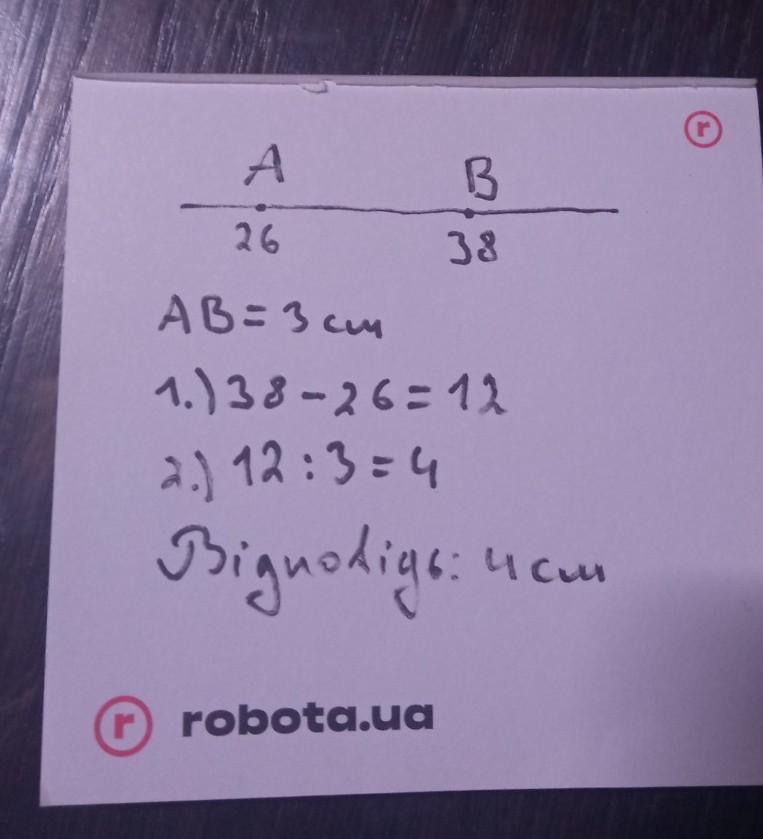 r
A B
26 38
AB = 3 см
1.) 38 - 26 = 12
2.) 12 : 3 = 4
Відповідь: 4 см
r robota.ua